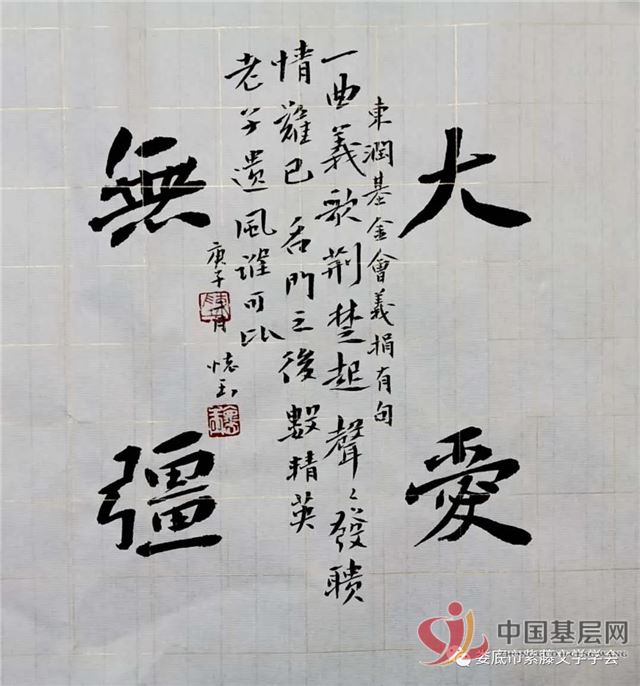 大愛
無彊
東潤基金會義捐有句
一曲義歌荆楚起聲〻發聵
情難已名門之後數精英
老子遺風誰可比
庚子
月
中国基层网
娄底市紫藤文学学会